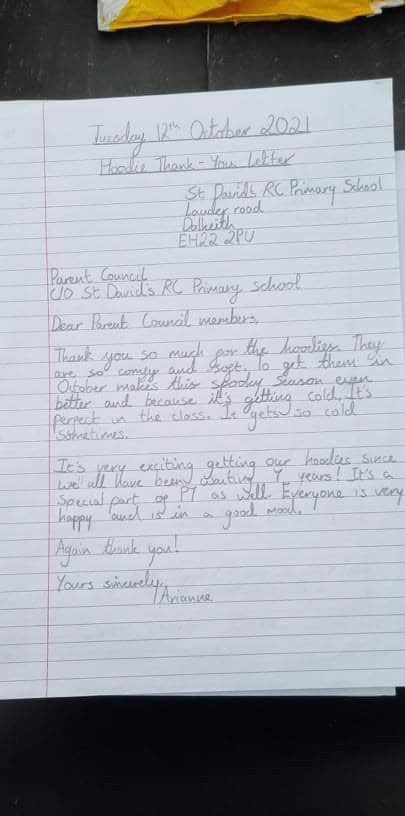 Tuesday 12th October 2021
Hoodie Thank-You Letter
St David's RC Primary School
Lauder road
Dalkeith
EH22 2PU
Parent Council
C/O St David's RC Primary school
Dear Parent Council members,
Thank you so much for the hoodies. They
are so comfy and soft. To get them in
October makes this spooky season even
better and because it's getting cold, It's
perfect in the class. It gets so cold
sometimes.
It's very exciting getting our hoodies since
we all have been waiting 7 years! It's a
special part of P7 as well. Everyone is very
happy and is in a good mood.
Again thank you!
Yours sincerely,
Arianne